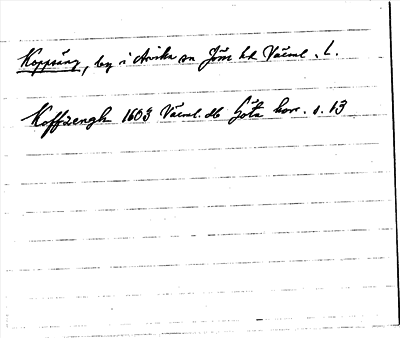 Koppsäng, by i Arvika sn Jöss hd Värml. l.
Koffzengh 1603 Värml. db Göta hovr. s. 13